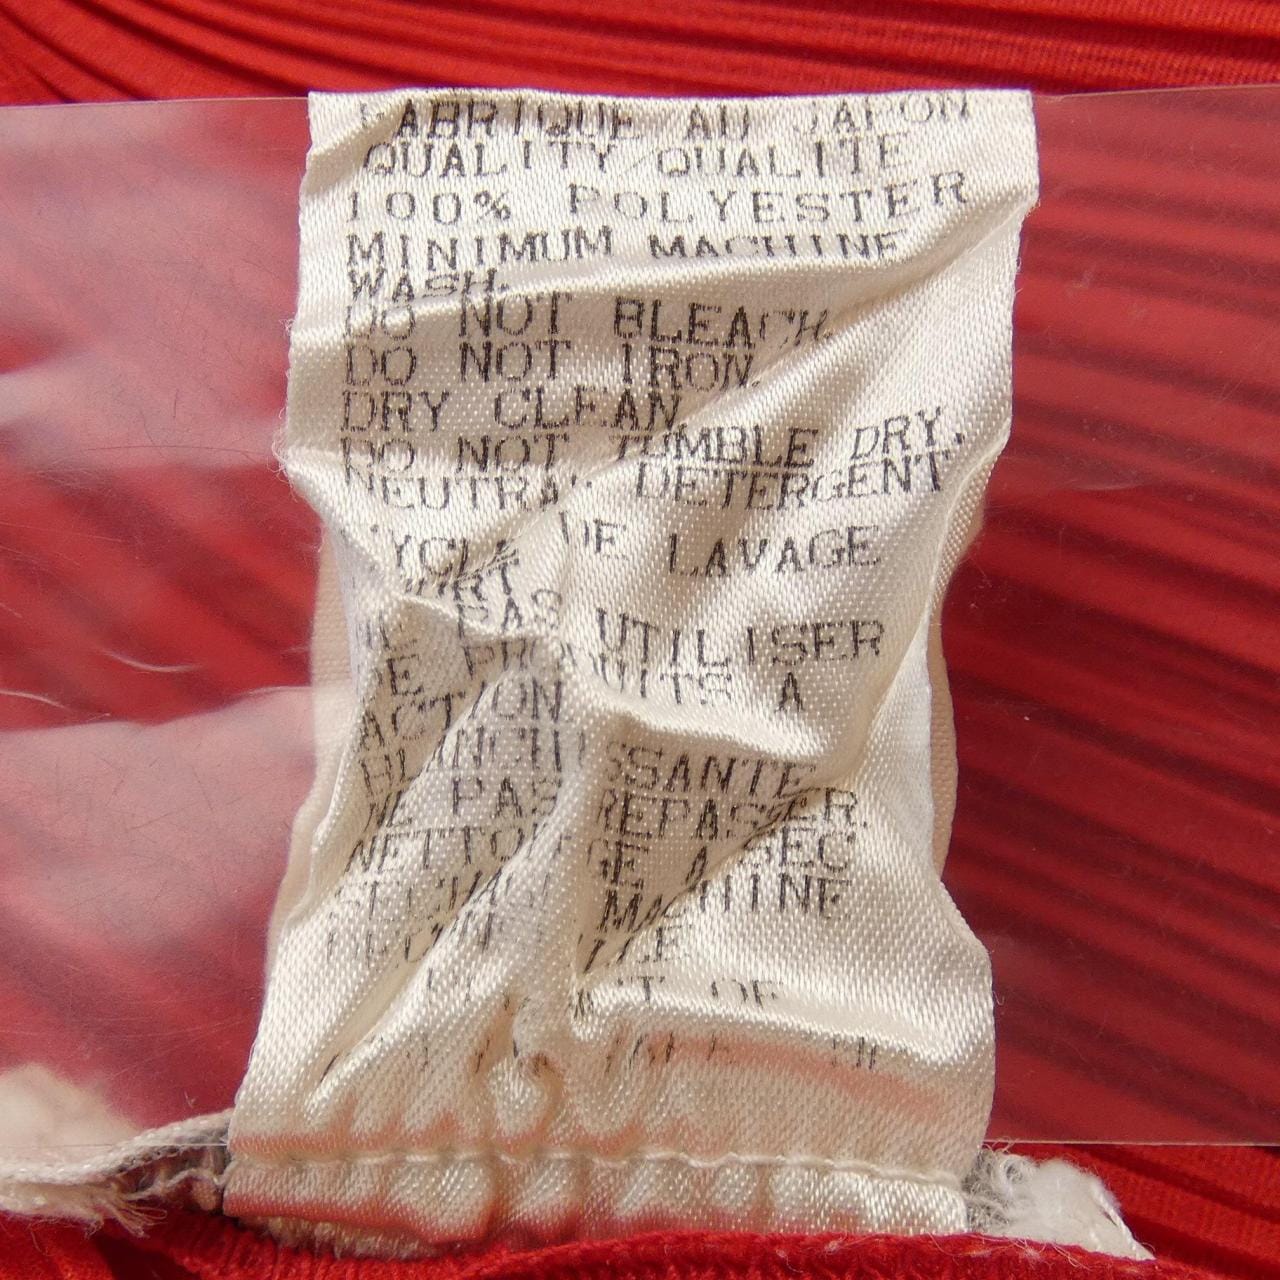 FABRIQUE AU JAPON
QUALITY/QUALITE
100% POLYESTER
MINIMUM MACHINE
WASH.
DO NOT BLEACH.
DO NOT IRON.
DRY CLEAN
DO NOT TUMBLE DRY.
NEUTRAL DETERGENT
CYCLE DE LAVAGE
NE PAS UTILISER
DE PRODUITS A
ACTION
BLANCHISSANTE
NE PAS REPASSER.
NETTOYAGE A SEC
MACHINE
OF